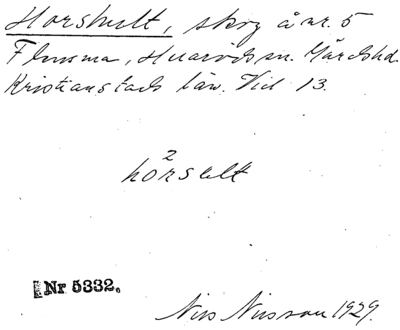 Horshult, skog å nr. 5
Flemma, Huaröds sn. Gärds hd.
Kristianstads län. Vid 13.
2
hòrselt
Nr 5332.
Nils Nilsson 1929.